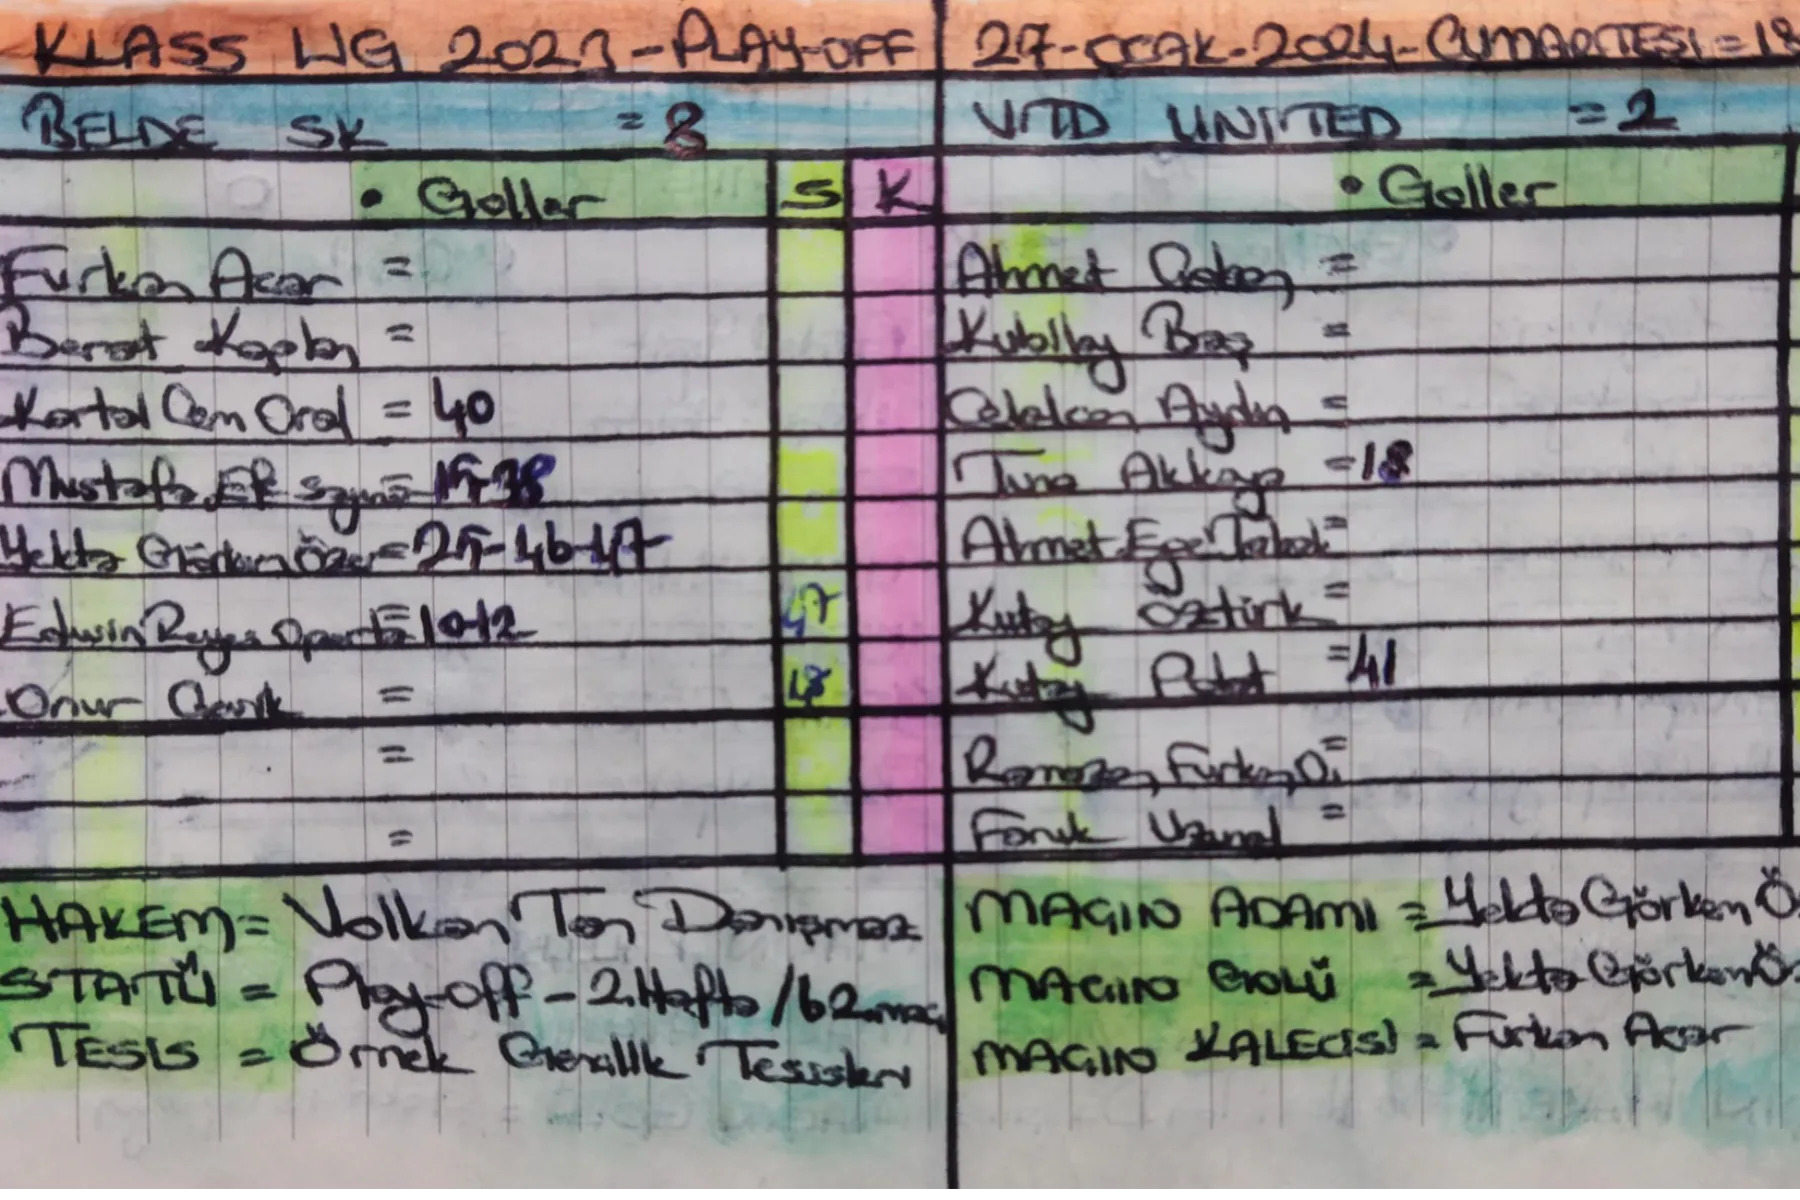 KLASS LİG 2023-PLAY-OFF
27-OCAK-2024-CUMARTESİ=18
BELDE SK =8
VTD UNITED =2
• Goller S K
• Goller
Furkan Acar =
Ahmet =
Berat Kaplan =
Kubilay Baş =
Kartal Cem Oral = 40
Celalcan Aydın =
Mustafa Ef =15-38
Tuna Akkaya =18
Yekta Görkem Özer=25-46-47
Ahmet Ege =
Edwin Reyes =10-12 47
Kutay Öztürk =
Onur = 48
Kutay Polat =41
=
Ramazan Furkan D. =
=
Faruk Uzunal =
HAKEM= Volkan Tan Danışmaz
STATÜ = Play-off-2.Hafta/62.maç
TESİS = Örnek Gençlik Tesisleri
MAÇIN ADAMI =Yekta Görkem Ö
MAÇIN GOLÜ =Yekta Görkem Ö
MAÇIN KALECİSİ = Furkan Acar